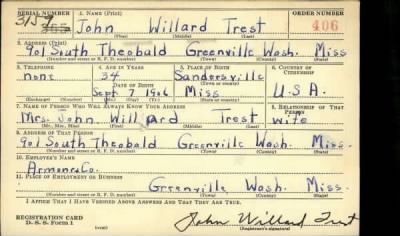 SERIAL NUMBER 1. NAME (Print) ORDER NUMBER
John Willard Trest 406
(First) (Middle) (Last)
2. ADDRESS (Print)
901 South Theobald Greenville Wash. Miss
(Number and street or R. F. D. number) (Town) (County) (State)
3. TELEPHONE 4. AGE IN YEARS 5. PLACE OF BIRTH 6. COUNTRY OF CITIZENSHIP
none 34 Sandersville
DATE OF BIRTH (Town or county)
Sept 7 1906 Miss U.S.A.
(Exchange) (Number) (Mo.) (Day) (Yr.) (State or country)
7. NAME OF PERSON WHO WILL ALWAYS KNOW YOUR ADDRESS 8. RELATIONSHIP OF THAT PERSON
Mrs. John Willard Trest Wife
(Mr., Mrs., Miss) (First) (Middle) (Last)
9. ADDRESS OF THAT PERSON
901 South Theobald Greenville Wash. Miss
(Number and street or R. F. D. number) (Town) (County) (State)
10. EMPLOYER'S NAME
11. PLACE OF EMPLOYMENT OR BUSINESS
Greenville Wash. Miss.
(Number and street or R. F. D. number) (Town) (County) (State)
I AFFIRM THAT I HAVE VERIFIED ABOVE ANSWERS AND THAT THEY ARE TRUE.
REGISTRATION CARD
D. S. S. Form 1 John Willard Trest
(over) (Registrant's signature)